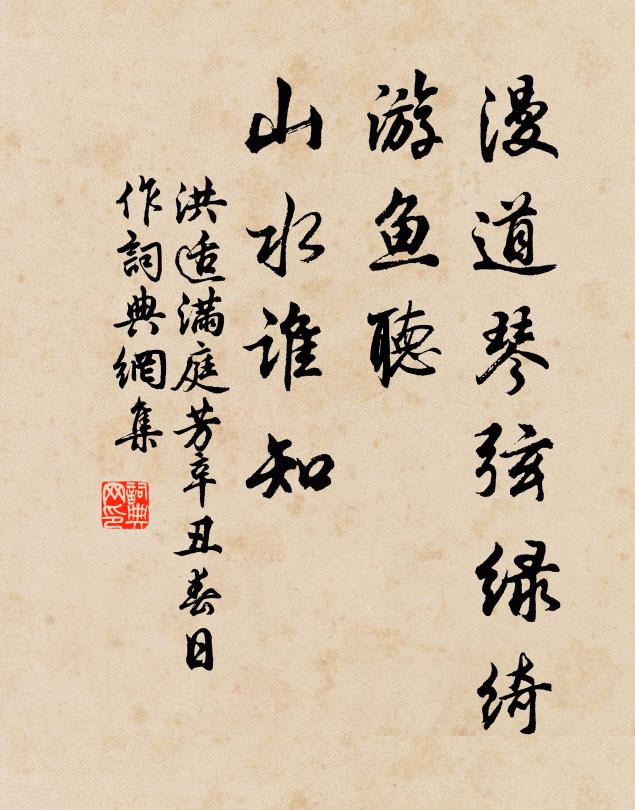 漫道琴弦绿绮
游鱼聽
山水谁知
洪适满庭芳辛丑春日
作詞典網集
詞典网印